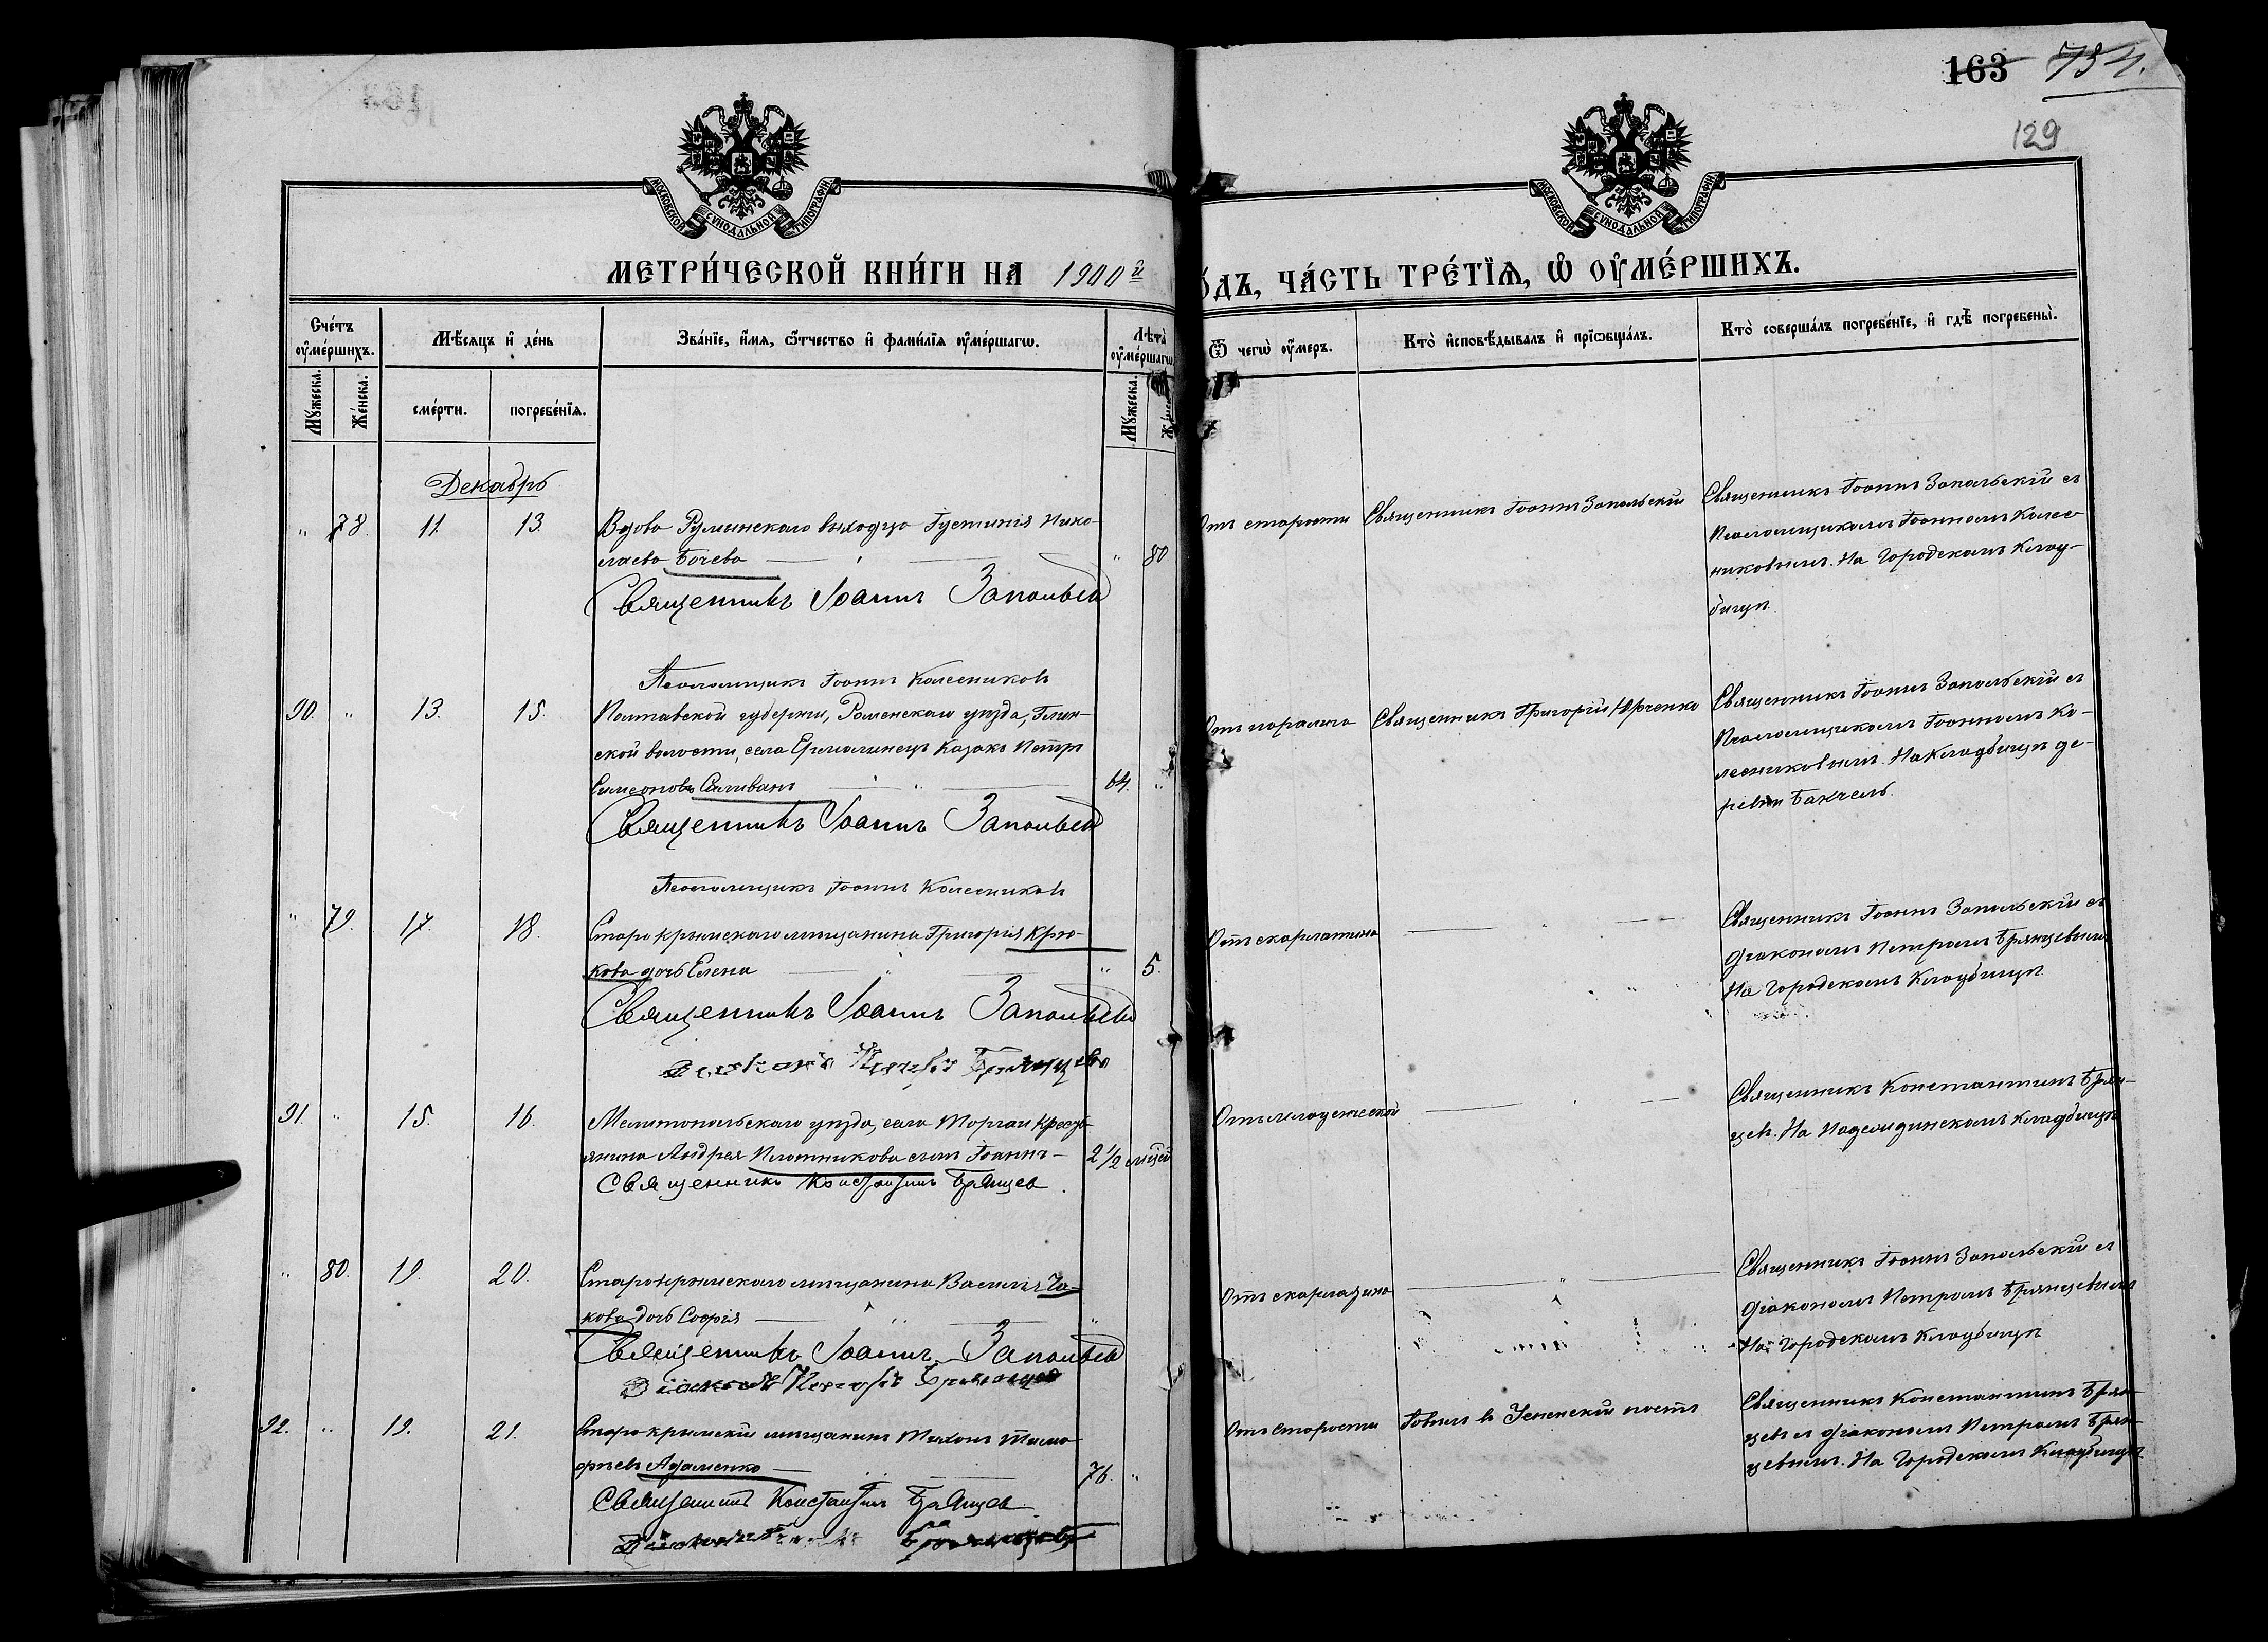 163 754.
129
МОСКОВСКОЙ СУНОДАЛЬНОЙ ТИПОГРАФІИ
МОСКОВСКОЙ СУНОДАЛЬНОЙ ТИПОГРАФІИ
МЕТРИ́ЧЕСКОЙ КНИ́ГИ НА 1900й
О́ДЪ, ЧА́СТЬ ТРЕ́ТІѦ, Ѽ ОУ҆МЕ́РШИХЪ.
Сче́тъ оу҆ме́ршихъ.
Мѣ́сяцъ и҆ де́нь
Зва́нїе, и҆́мя, ѻ҆́тчество и҆ фами́лїя оу҆ме́ршагѡ.
Лѣ̑та оу҆ме́ршагѡ
Ѿ чегѡ̀ оу҆́меръ.
Кто̀ и҆сповѣ́дывалъ и҆ прїѡбща́лъ.
Кто̀ соверша́лъ погребе́нїе, и҆ гдѣ̀ погребены̀.
Му́жеска.
Же́нска.
сме́рти.
погребе́нїя.
Му́жеска.
Декабрь
" 78. 11. 13. Вдова Румынскаго выходца Густинія Нико-
лаева Бочева " 80.
Священникъ Іоаннъ Запольскій
Отъ старости
Священникъ Іоаннъ Запольскій
Священникъ Іоаннъ Запольскій съ
Псаломщикомъ Іоанномъ Колес-
никовымъ. На Городскомъ клад-
бищѣ.
Псаломщикъ Іоаннъ Колесниковъ
90. " 13. 15. Полтавской губерніи, Роменскаго уѣзда, Глин-
ской волости, села Ярмолинецъ Казакъ Петръ
Симеоновъ Саливанъ 64. "
Священникъ Іоаннъ Запольскій
Отъ паралича
Священникъ Григорій Юрченко
Священникъ Іоаннъ Запольскій съ
Псаломщикомъ Іоанномъ Ко-
лесниковымъ. На кладбищѣ де-
ревни Бакчель.
Псаломщикъ Іоаннъ Колесниковъ
" 79. 17. 18. Старокрымскаго мѣщанина Григорія Крю-
кова дочь Елена " 5.
Священникъ Іоаннъ Запольскій
Діаконъ Петръ Брянцевъ
Отъ скарлатина
Священникъ Іоаннъ Запольскій съ
діакономъ Петромъ Брянцевымъ
На Городскомъ кладбищѣ
91. " 15. 16. Мелитопольскаго уѣзда, села Торгаи кресть-
янина Андрея Плотникова сынъ Іоаннъ 2 1/2 мѣсяц
Священникъ Константинъ Брянцев.
Отъ младенческой
Священникъ Константинъ Брян-
цевъ. На кладбищѣ
" 80. 19. 20. Старокрымскаго мѣщанина Василія
кова дочь Софія
Священникъ Іоаннъ Запольскій
Діаконъ Петръ Брянцевъ
Отъ скарлатина
Священникъ Іоаннъ Запольскій съ
діакономъ Петромъ Брянцевымъ
На Городскомъ кладбищѣ
92. " 19. 21. Старокрымскій мѣщанинъ Тихонъ Тимо-
феевъ Адаменко 76. "
Священникъ Константинъ Брянцев.
Діаконъ Петръ Брянцевъ
Отъ старости
Говѣлъ въ Успенскій постъ
Священникъ Константинъ Брян-
цевъ съ діакономъ Петромъ Брян-
цевымъ. На Городскомъ кладбищѣ